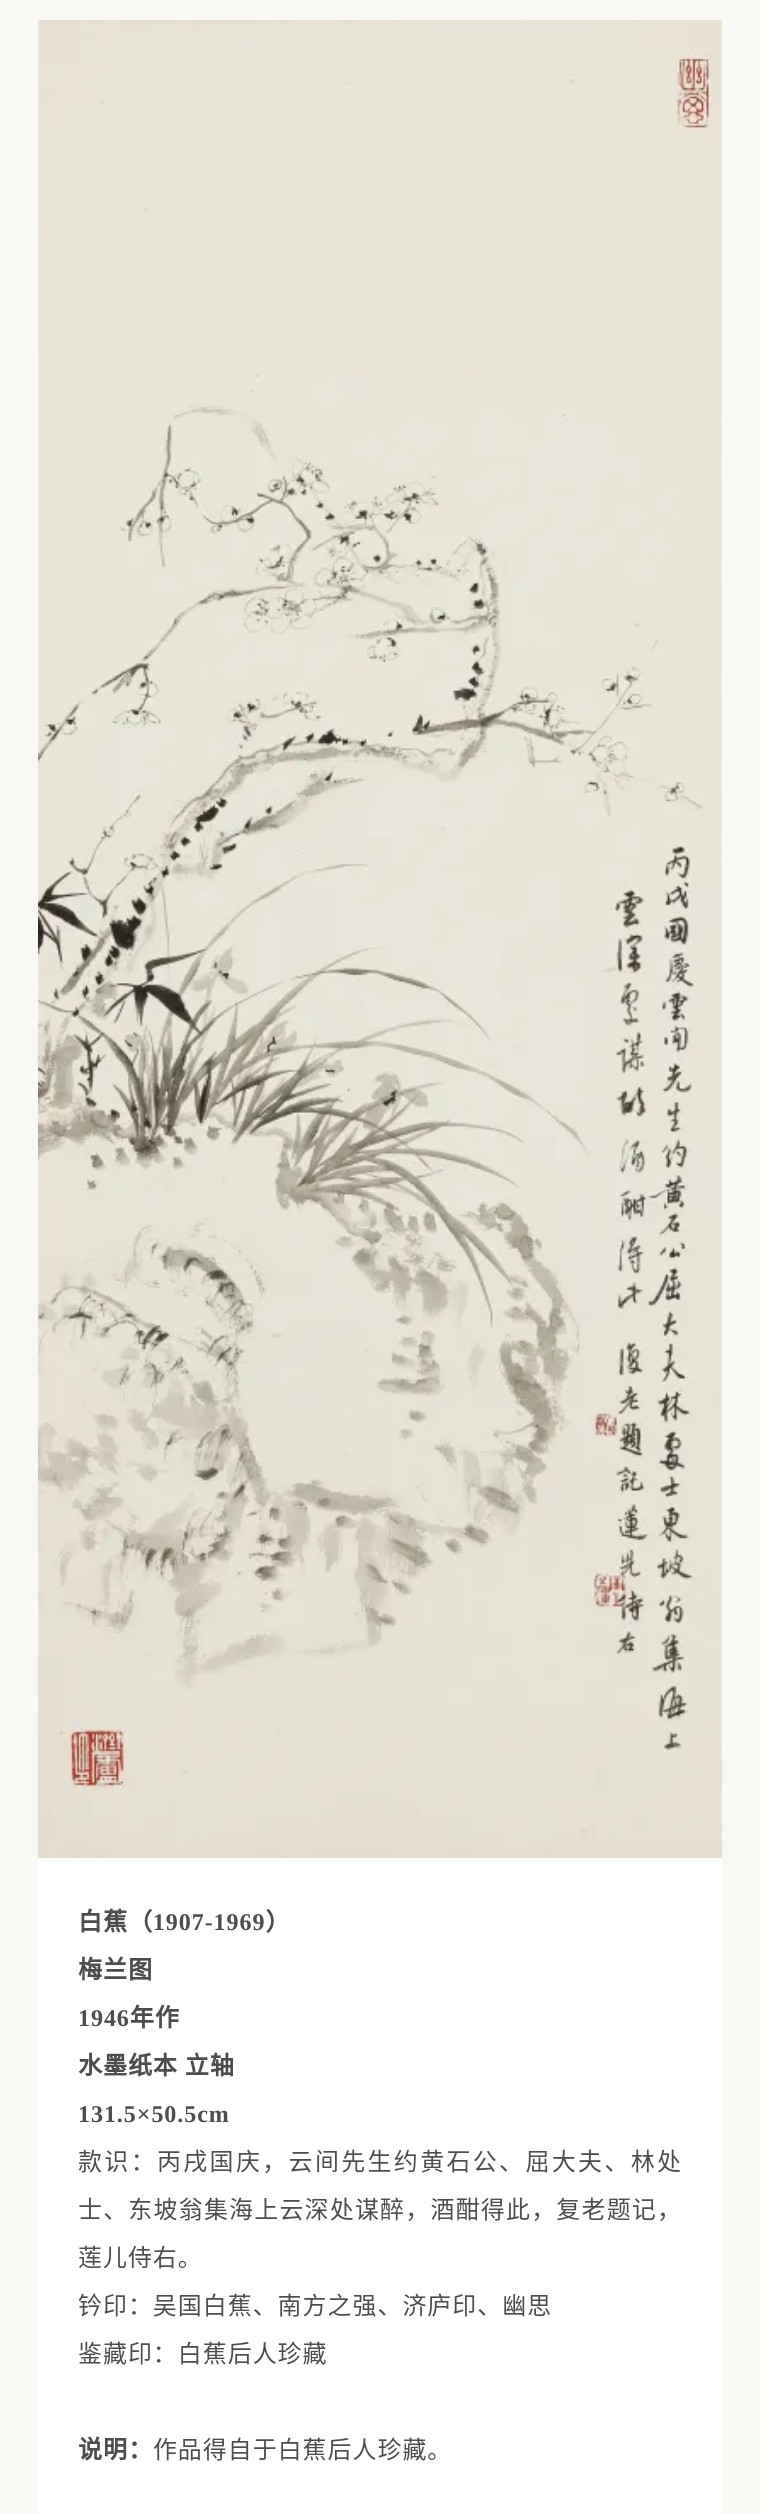 丙戌國慶雲间先生约黄石公屈大夫林處士東坡翁集海上
雲深處谋醉酒酣得此 復老題記蓮児侍右
幽思
白蕉（1907-1969）
梅兰图
1946年作
水墨纸本 立轴
131.5×50.5cm
款识：丙戌国庆，云间先生约黄石公、屈大夫、林处
士、东坡翁集海上云深处谋醉，酒酣得此，复老题记，
莲儿侍右。
钤印：吴国白蕉、南方之强、济庐印、幽思
鉴藏印：白蕉后人珍藏
说明：作品得自于白蕉后人珍藏。